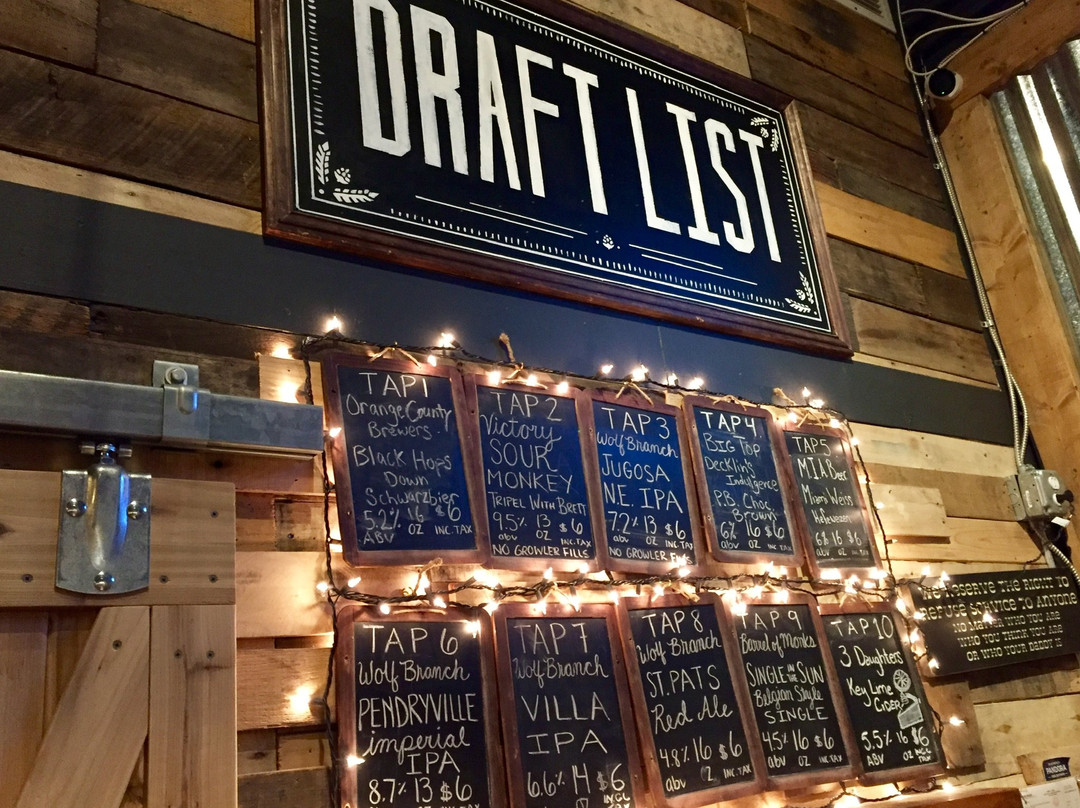 DRAFT LIST
TAP 1
Orange County
Brewers
Black Hops
Down
Schwarzbier
5.2% 16 $6
ABV OZ INC.TAX
TAP 2
Victory
SOUR
MONKEY
TRIPEL WITH BRETT
9.5% 13 $6
abv OZ INC.TAX
NO GROWLER FILLS
TAP 3
Wolf Branch
JUGOSA
N.E. IPA
7.2% 13 $6
abv OZ INC.TAX
NO GROWLER
TAP 4
BIG TOP
Decklin's
Indulgence
P.B. Choc
Brown
6% 16 $6
abv OZ INC.TAX
TAP 5
M.I.A Beer
Miami Weiss
Hefeweizen
6% 16 $6
abv OZ INC.TAX
TAP 6
Wolf Branch
PENDRYVILLE
imperial
IPA
8.7% 13 $6
ABV OZ INC.TAX
TAP 7
Wolf Branch
VILLA
IPA
6.6% 14 $6
abv OZ
TAP 8
Wolf Branch
ST. PATS
Red Ale
4.8% 16 $6
abv OZ INC.TAX
TAP 9
Barrel of Monks
SINGLE IN THE SUN
Belgian Style
SINGLE
4.5% 16 $6
ABV OZ INC.TAX
TAP 10
3 Daughters
Key Lime
CIDER
5.5% 16 $6
ABV OZ INC. TAX
WE RESERVE THE RIGHT TO
REFUSE SERVICE TO ANYONE
NO MATTER WHO YOU ARE
WHO YOU THINK YOU ARE
OR WHO YOUR DADDY IS
PANDORA